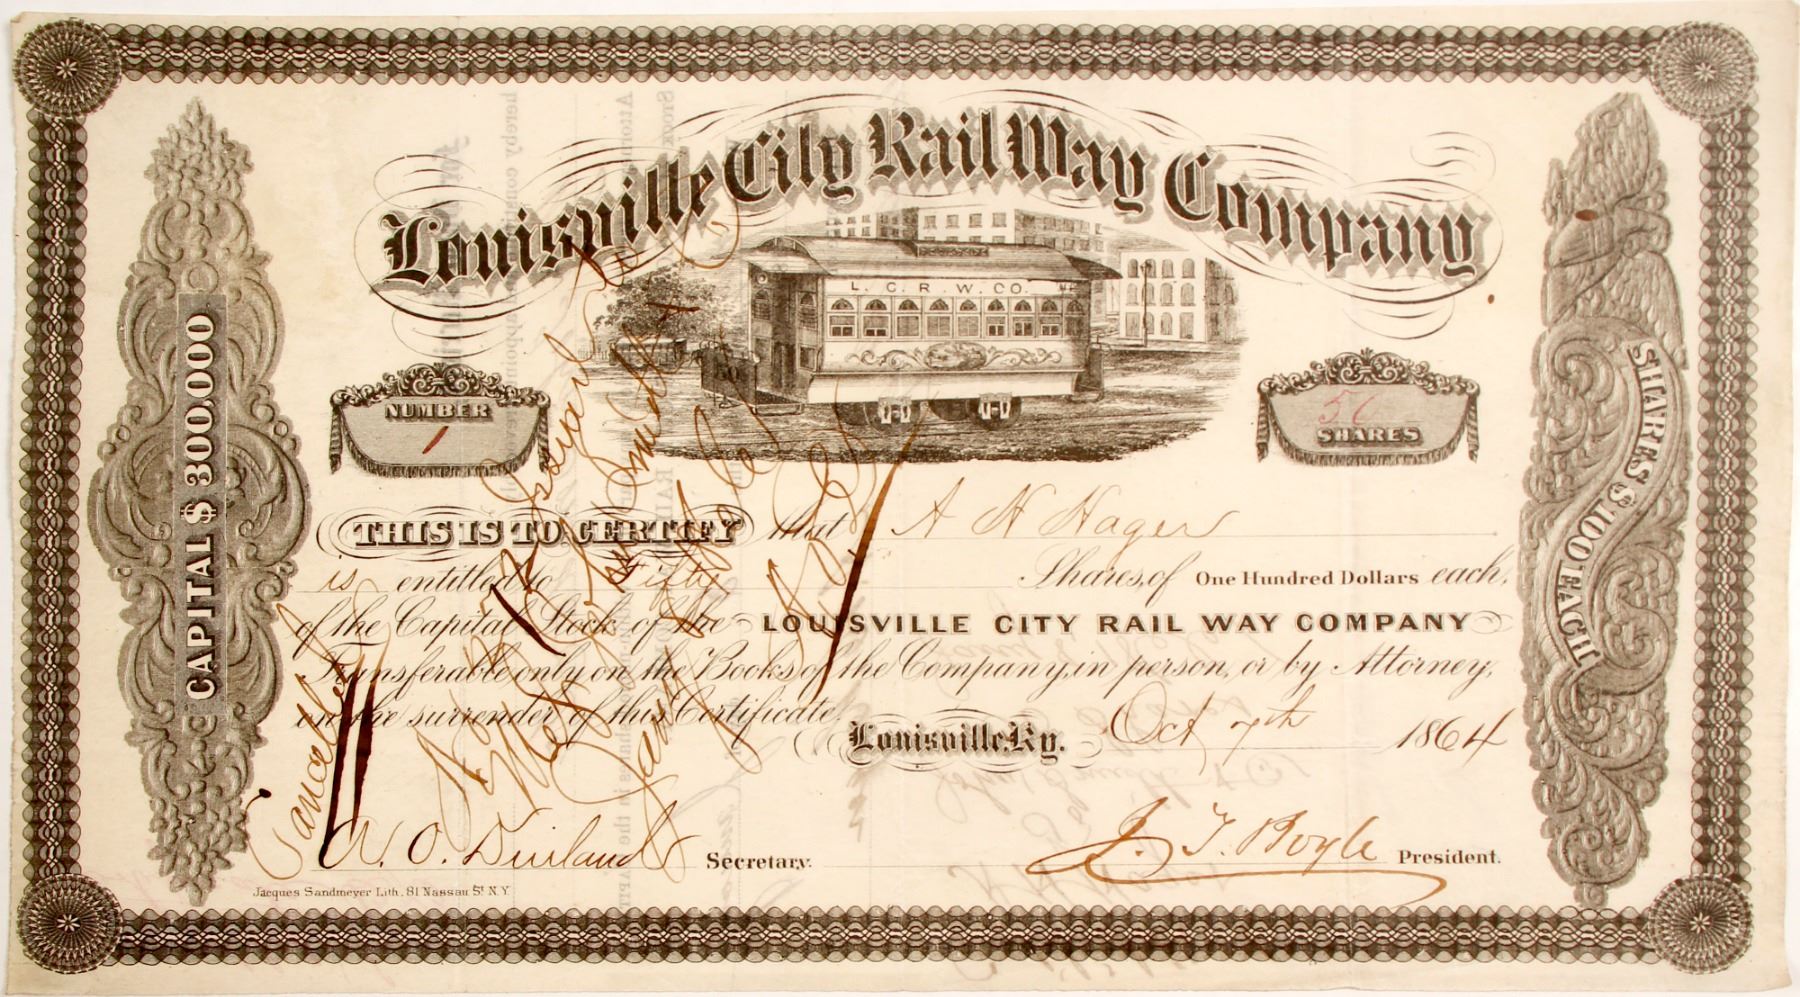 Louisville City Rail Way Company
L. C. R. W. CO.
NUMBER
1
50
SHARES
CAPITAL $ 300.000
SHARES $ 100 EACH
THIS IS TO CERTIFY that A H Hager
is entitled to Fifty Shares, of One Hundred Dollars each,
of the Capital Stock of the LOUISVILLE CITY RAIL WAY COMPANY
Transferable only on the Books of the Company, in person, or by Attorney,
on the surrender of this Certificate.
Louisville, Ky. Oct 7th 1864
Cancelled
Issued to
Secretary.
J. T. Boyle President.
Jacques Sandmeyer Lith. 81 Nassau St. N.Y.